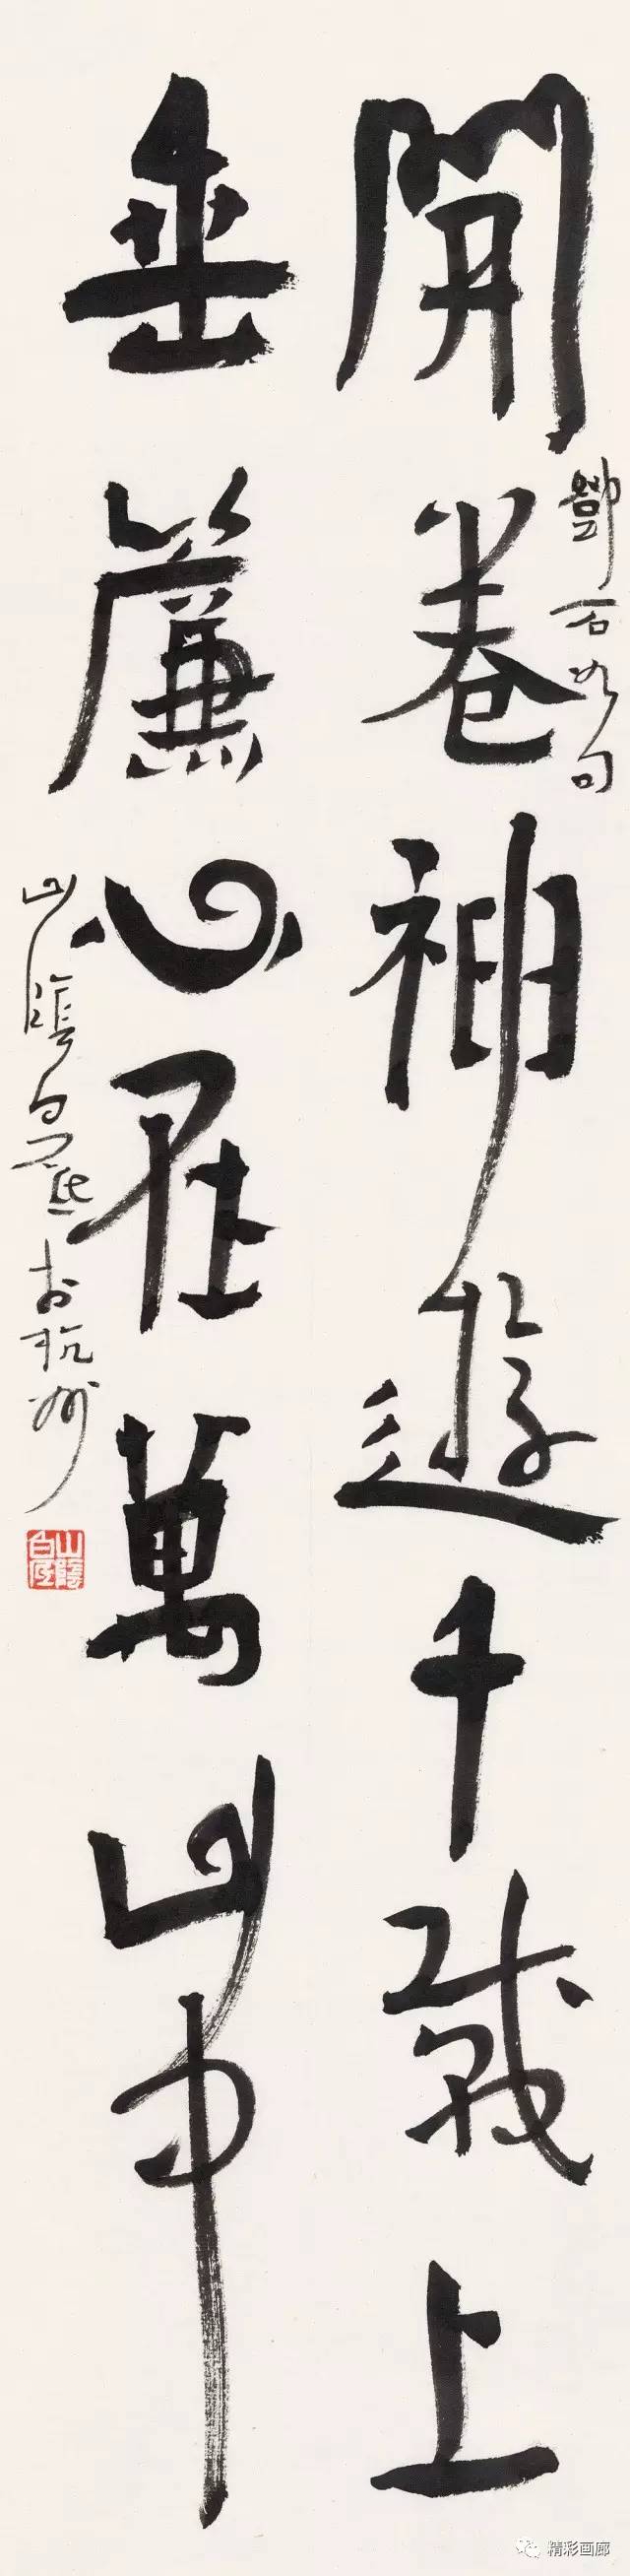 開卷神遊千載上
鄧石如句
垂簾心在萬山中
山陰白砥於杭州
山陰白砥
精彩画廊